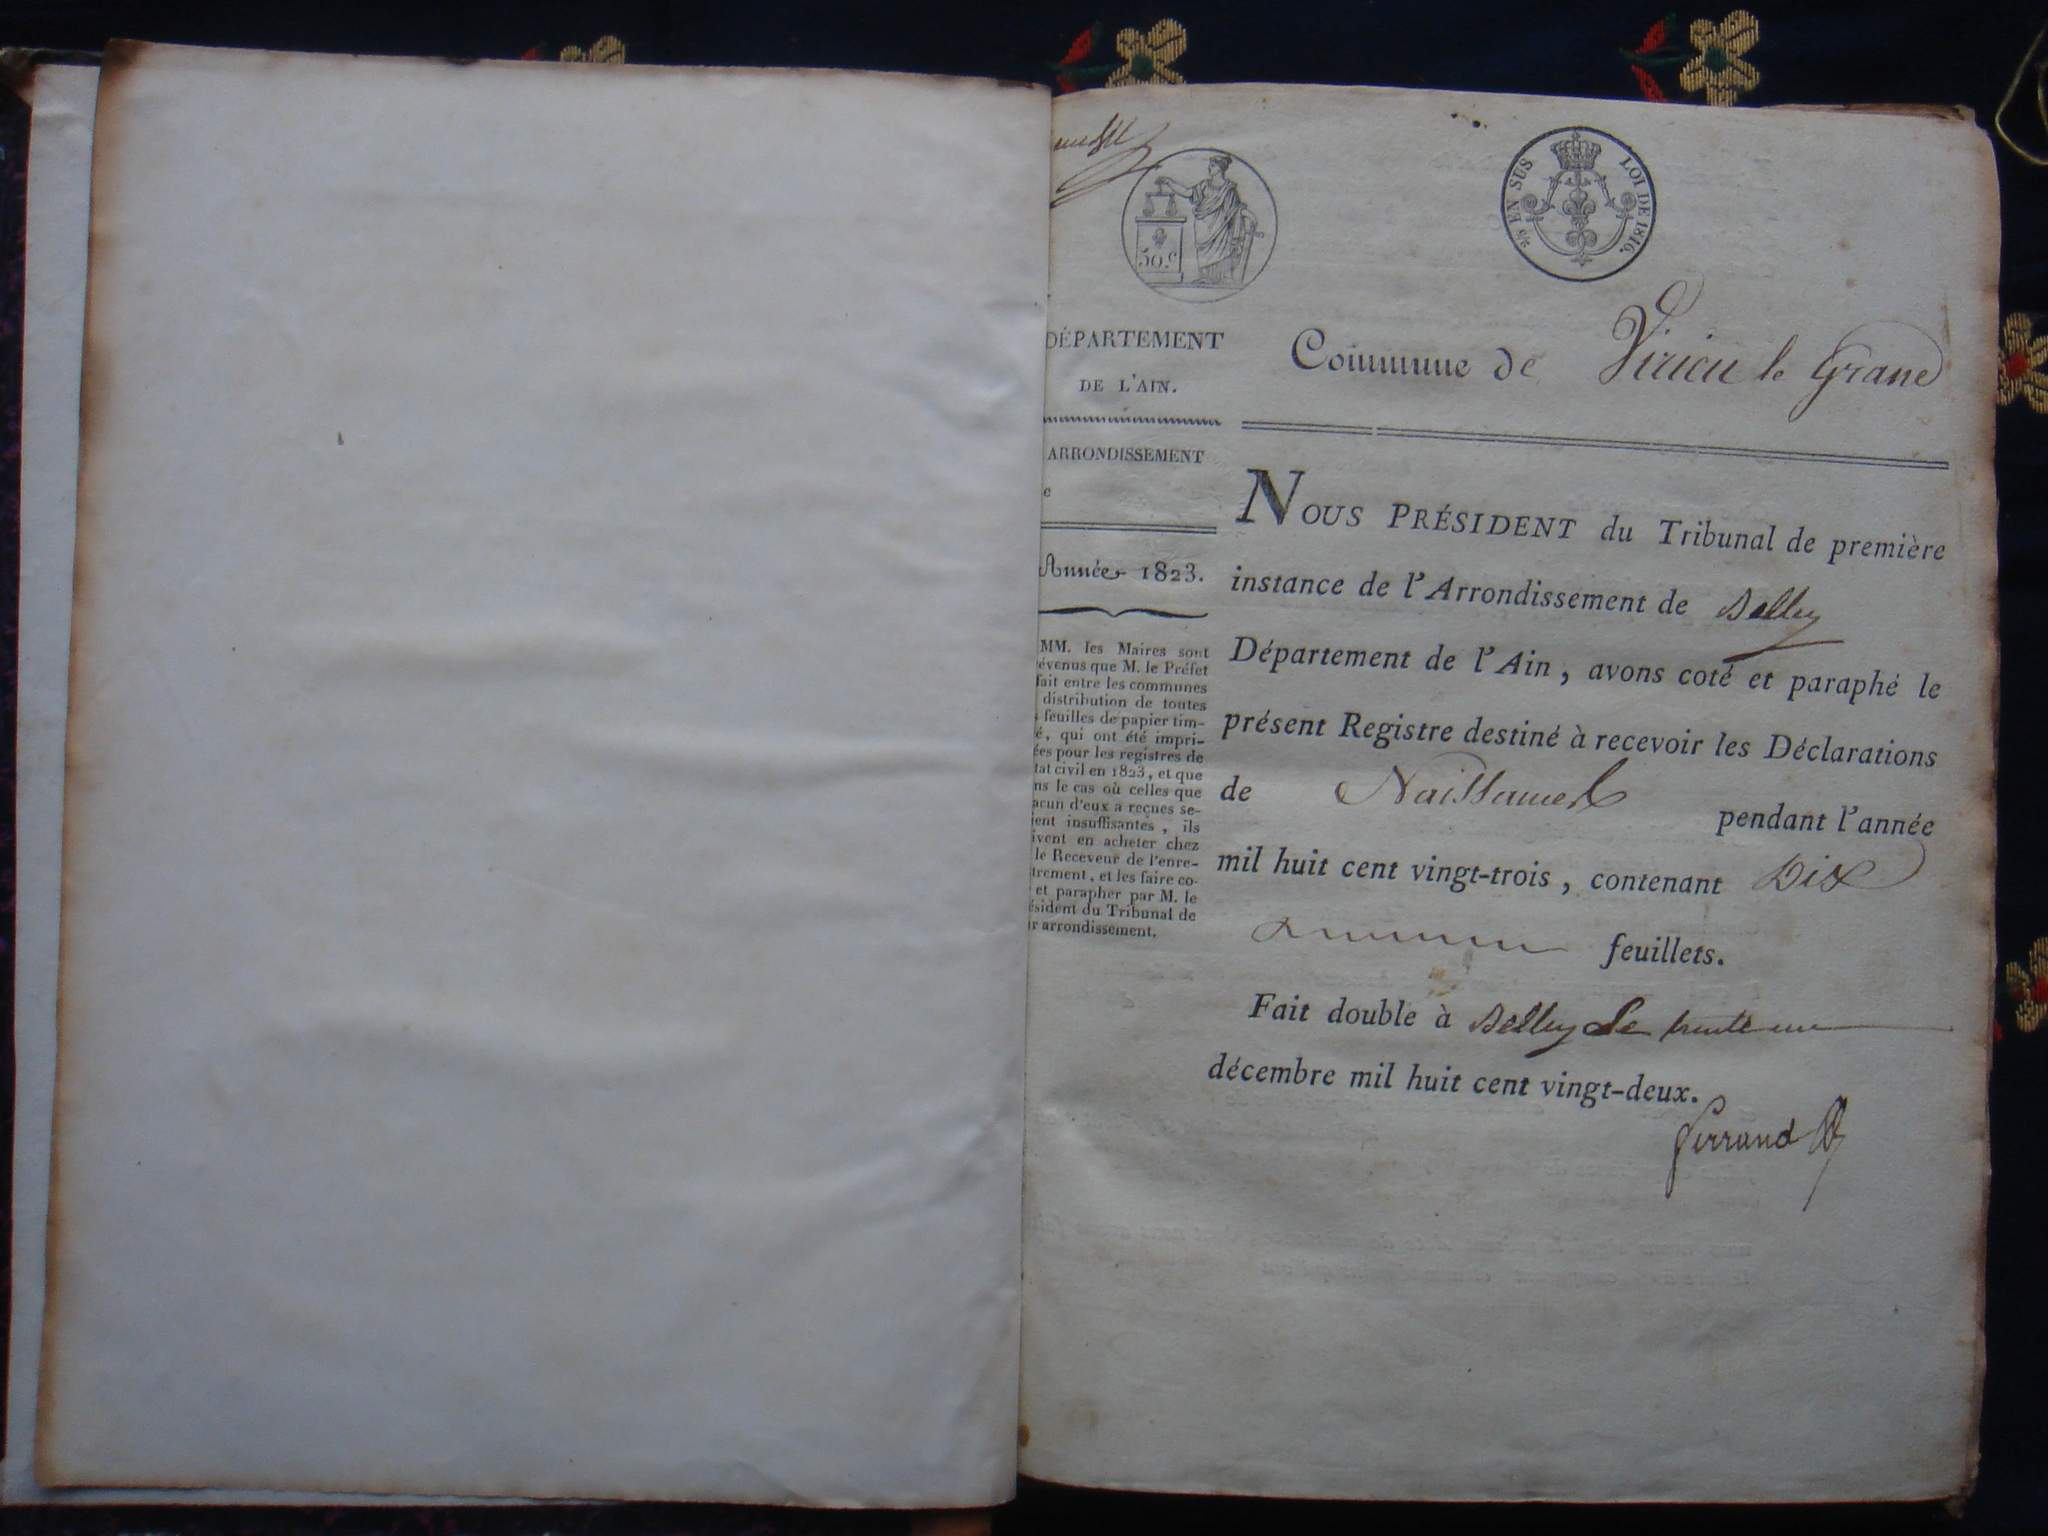 50.c
c/s EN SUS LOI DE 1816.
DÉPARTEMENT
DE L'AIN.
ARRONDISSEMENT
Année 1823.
MM. les Maires sont
évenus que M. le Préfet
fait entre les communes
distribution de toutes
feuilles de papier tim-
é, qui ont été impri-
ées pour les registres de
tat civil en 1823, et que
ns le cas où celles que
acun d'eux a reçues se-
ient insuffisantes, ils
ivent en acheter chez
le Receveur de l'enre-
trement, et les faire co-
et parapher par M. le
ésident du Tribunal de
r arrondissement.
Commune de Virieu le Grand
NOUS PRÉSIDENT du Tribunal de première
instance de l'Arrondissement de Belley
Département de l'Ain, avons coté et paraphé le
présent Registre destiné à recevoir les Déclarations
de Naissances pendant l'année
mil huit cent vingt-trois, contenant Dix
feuillets.
Fait double à Belley Le trente un
décembre mil huit cent vingt-deux.
Ferrand